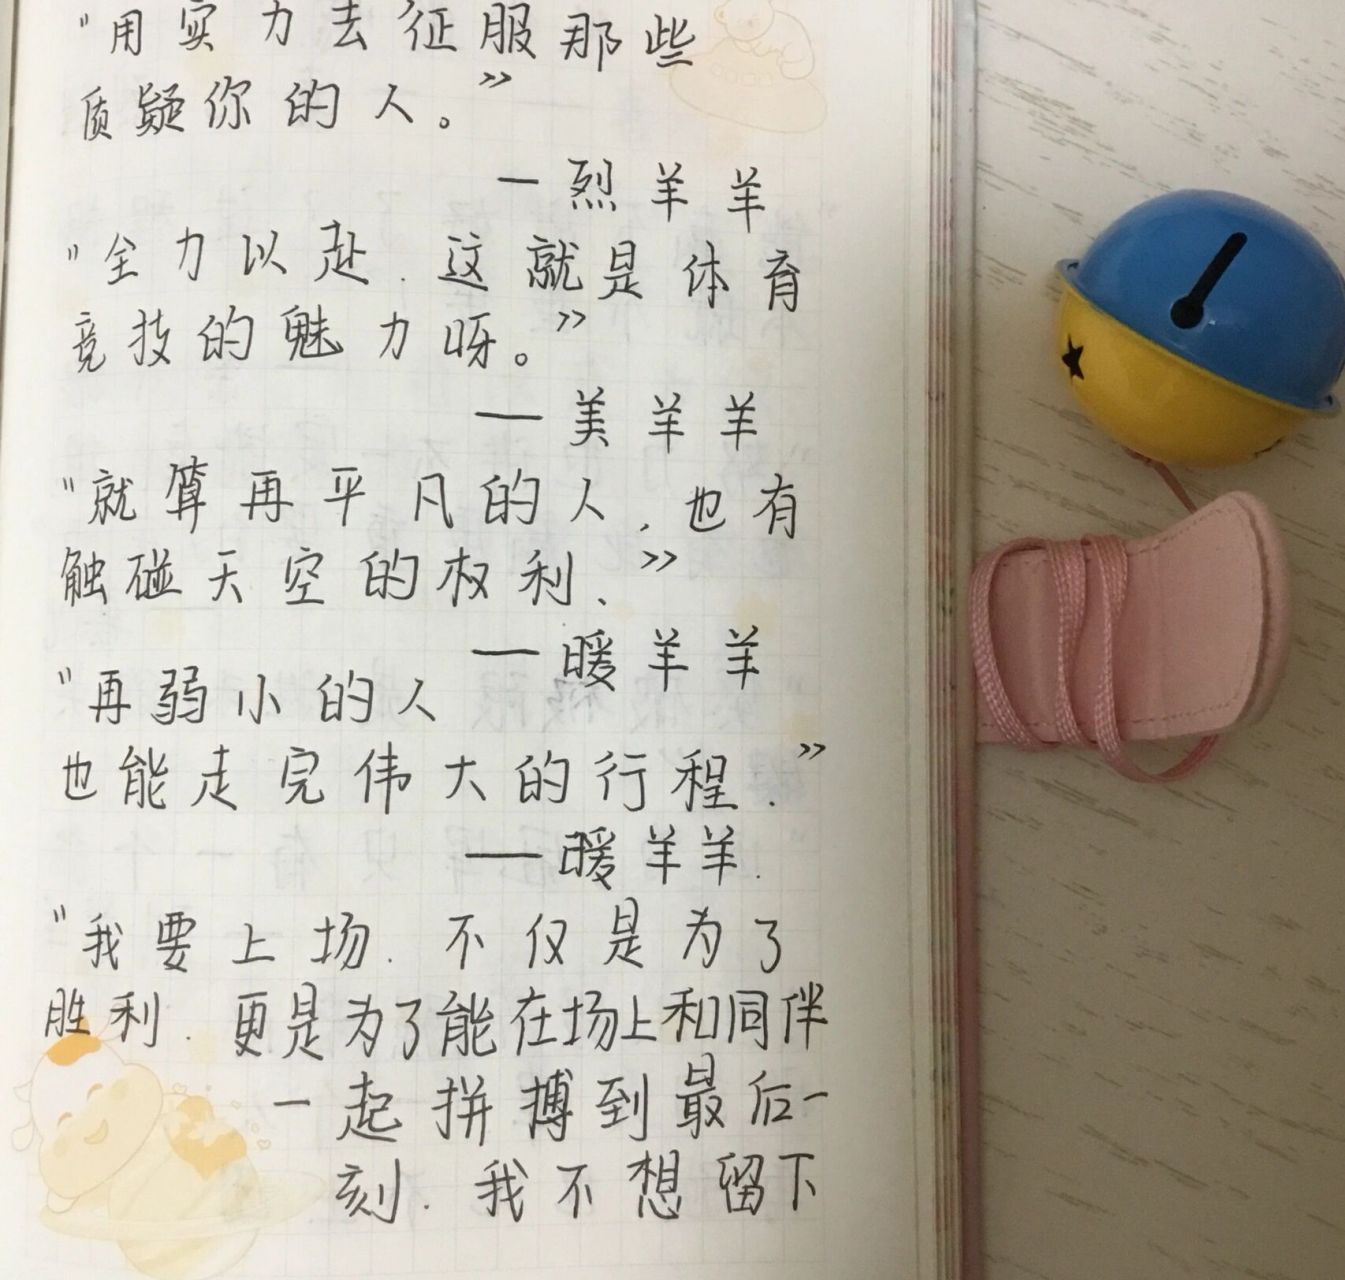 "用实力去征服那些
质疑你的人。"
一烈羊羊
"全力以赴.这就是体育
竞技的魅力呀。"
—美羊羊
"就算再平凡的人,也有
触碰天空的权利、"
—暖羊羊
"再弱小的人
也能走完伟大的行程."
—暖羊羊.
"我要上场.不仅是为了
胜利.更是为了能在场上和同伴
一起拼搏到最后一
刻.我不想留下